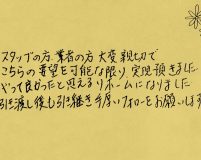 スタッフの方、業者の方 大変 親切で
こちらの 要望を可能な限り 実現 頂きました
がって良かったと思えるリホームになりました
引き渡し後も引き継き手厚いフォローをお願いします